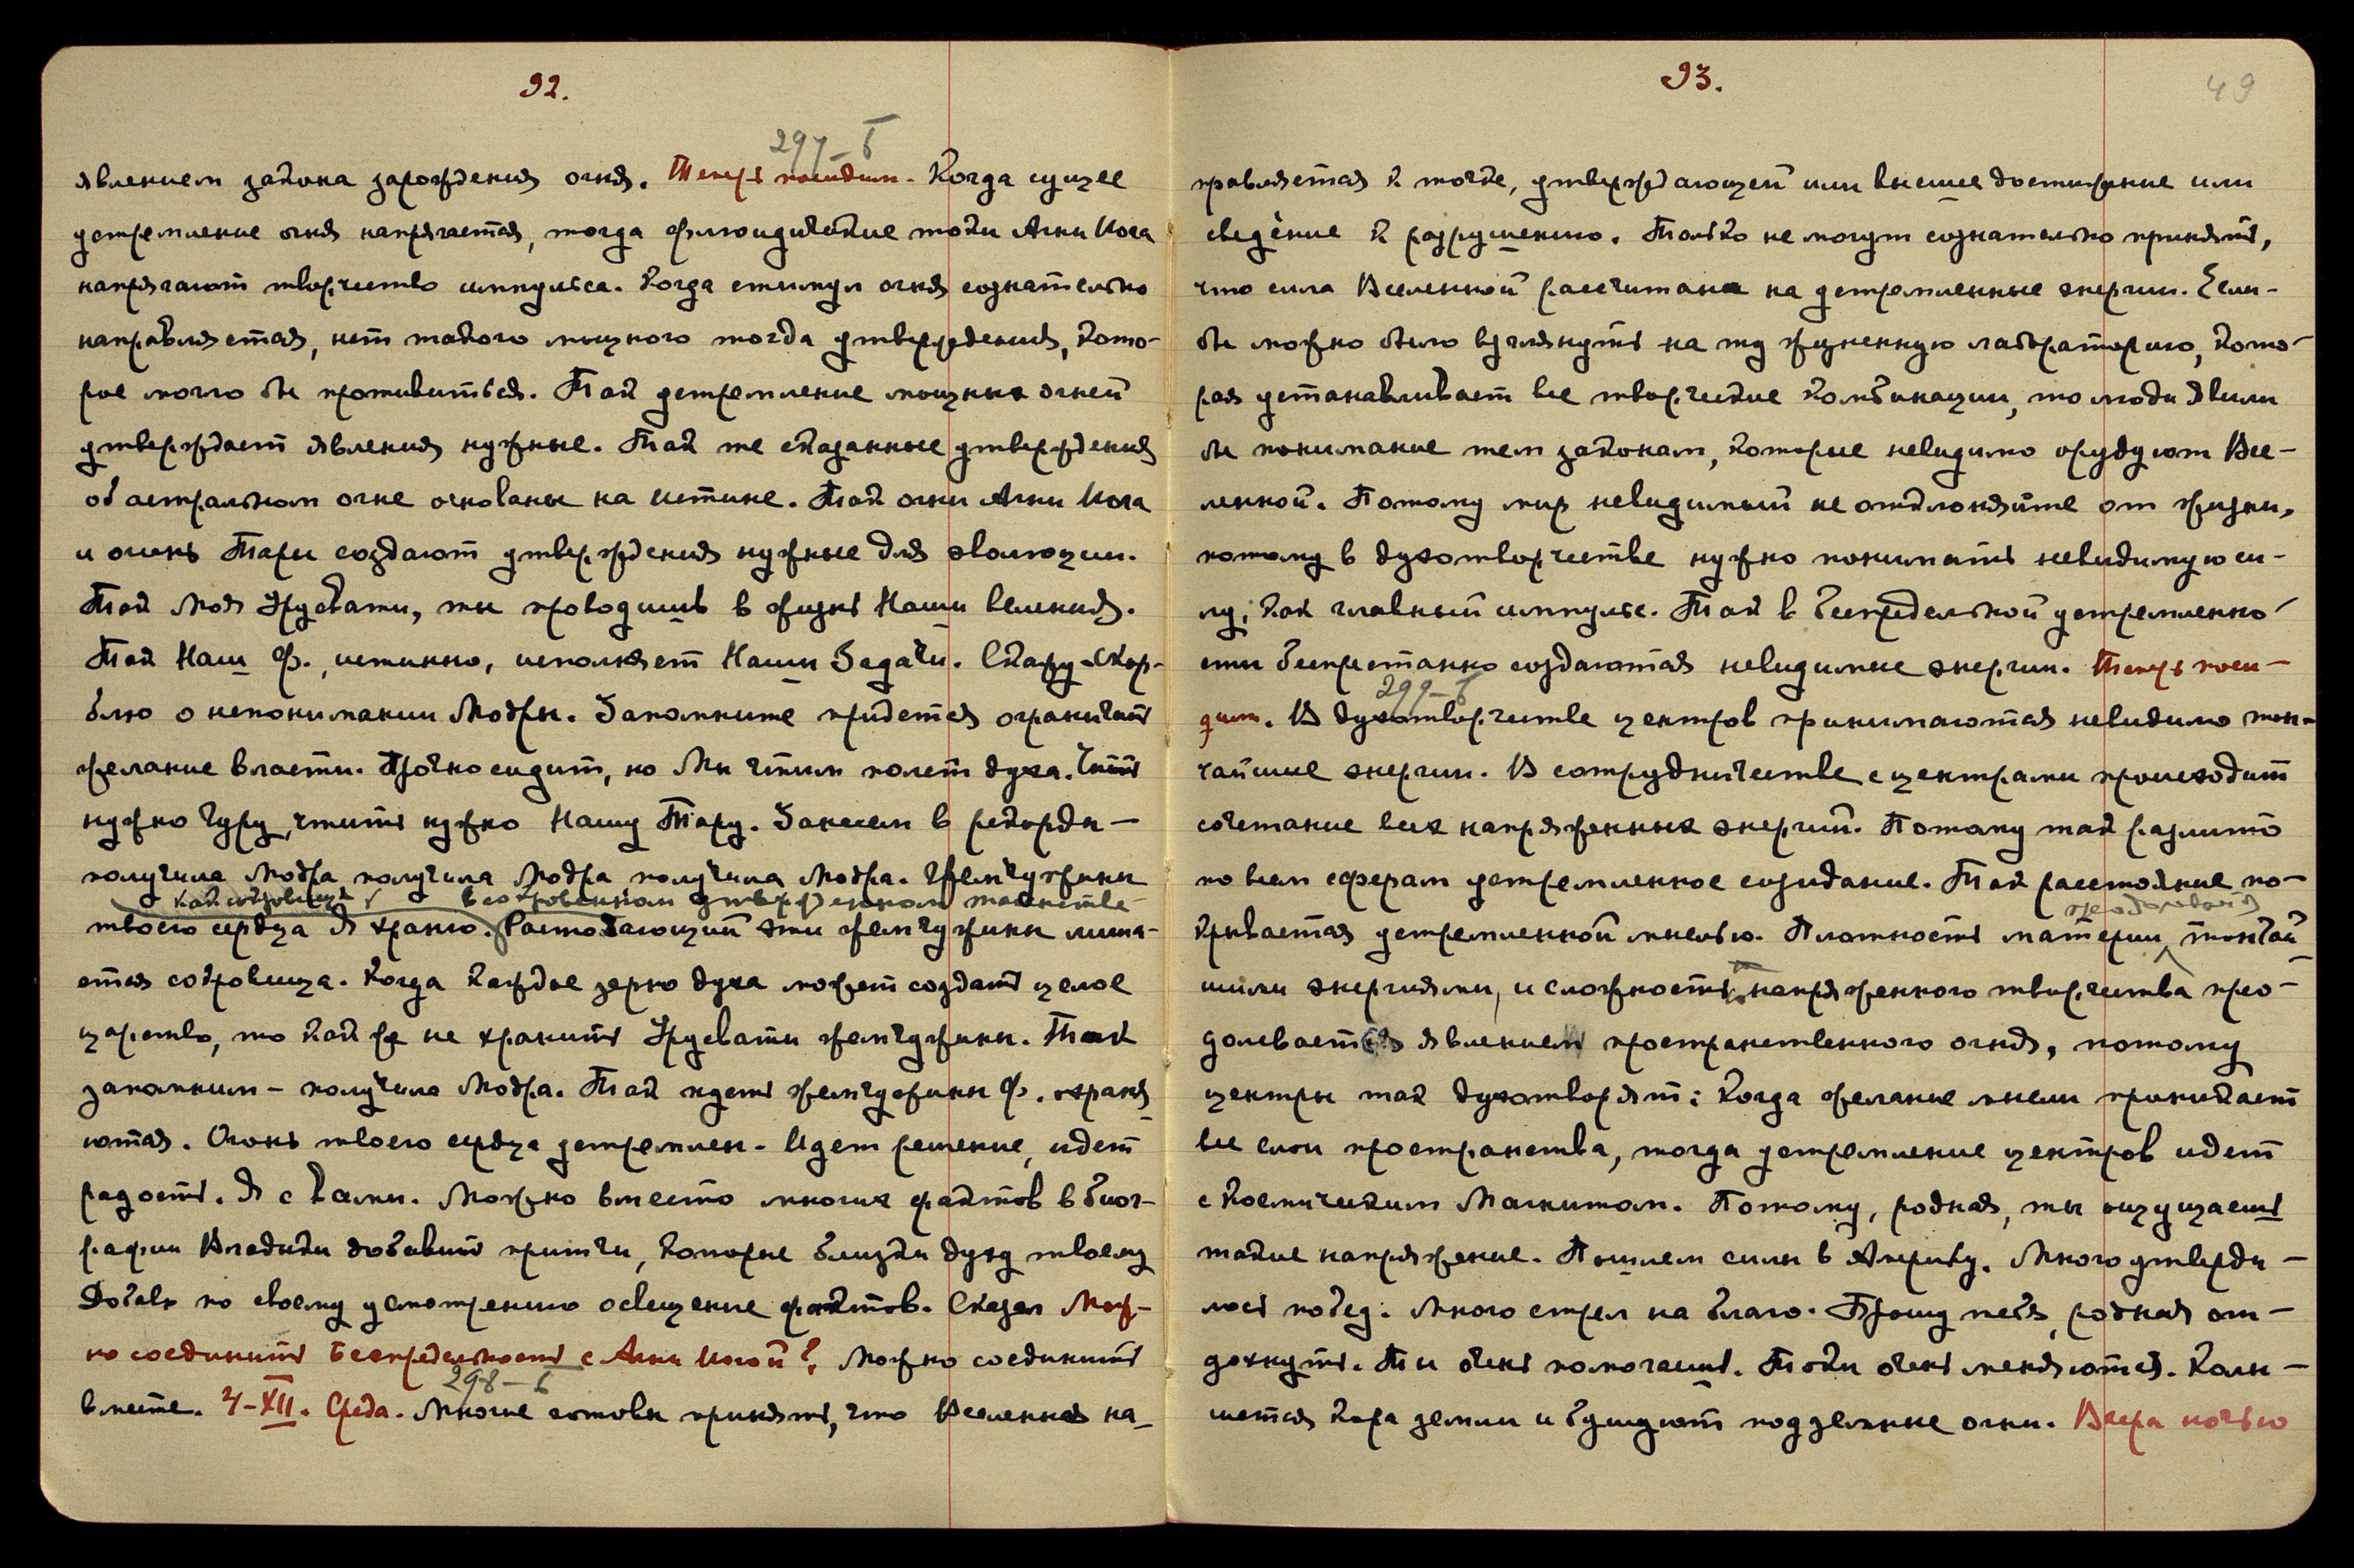 92.
297–Б
явлением закона зарождения огня. Теперь посидим. Когда сущее
устремление огня напрягается, тогда флюидические токи Агни Йога
напрягают творчество импульса. Когда стимул огня сознательно
направляется, нет такого мощного тогда утверждения, кото-
рое могло бы противиться. Так устремление мощных огней
утверждает явления нужные. Так те сказанные утверждения
об астральном огне основаны на истине. Так огни Агни Йога
и огонь Тары создают утверждения нужные для эволюции.
Так моя Урусвати, ты проводишь в жизнь Наши веления.
Так Наш Ф., истинно, исполняет Наши Задачи. Скажу–скор-
блю о непонимании Модры. Запомните придется ограничить
желание власти. Прочно сидит, но Мы чтим полет духа. Чтить
нужно Гуру, чтить нужно Нашу Тару. Занесем в рекорды –
получила Модра получила Модра получила Модра. Жемчужины
как сокровище в сокровенном утвержденном таинстве
твоего сердца Я храню. Расточающий эти жемчужины лиша-
ется сокровища. Когда каждое зерно духа может создать целое
царство, то как же не хранить Урусвати жемчужины. Так
запомним – получила Модра. Так пусть жемчужины Ф. охраня-
ются. Огонь твоего сердца устремлен. Идет решение, идет
радость. Я с вами. Можно вместо многих фактов в биог-
рафии Владыки добавить притчи, которые близки духу твоему
Добавь по своему усмотрению освещение фактов. Сказал Мож-
но соединить Беспредельность с Агни Йогой? Можно соединить
298–Б
вместе. 4–XII. Среда. Многие готовы принять, что Вселенная на-
93.
49
правляется к точке, утверждающей или высшее достижение или
сведение к разрушению. Только не могут сознательно принять,
что сила Вселенной рассчитана на устремленные энергии. Если-
бы можно было взглянуть на ту жизненную лабораторию, кото-
рая устанавливает все творческие комбинации, то люди явили
бы понимание тем законам, которые невидимо орудуют Все-
ленной. Потому мир невидимый не отклоняйте от жизни,
потому в духотворчестве нужно понимать невидимую си-
лу, как главный импульс. Так в беспредельной устремленно-
сти беспрестанно создаются невидимые энергии. Теперь поси-
299–Б
дим. В духотворчестве центров принимаются невидимо тон-
чайшие энергии. В сотрудничестве с центрами происходит
сочетание всех напряженных энергий. Потому так разлито
по всем сферам устремленное созидание. Так расстояние по-
преодолевается
крывается устремленной мыслью. Плотность материи тончай-
шими энергиями, и сложность напряженного творчества прео-
долевается явлением пространственного огня, потому
центры так духотворят; когда желание мысли проникает
все слои пространства, тогда устремление центров идет
с Космическим Магнитом. Потому, родная, ты ощущаешь
такие напряжение. Пошлем силы в Америку. Много утверди-
лось побед. Много стрел на благо. Прошу тебя, родная от-
дохнуть. Ты очень помогаешь. Токи очень меняются. Колы-
шется кора земли и бушуют подземные огни. Вчера ночью